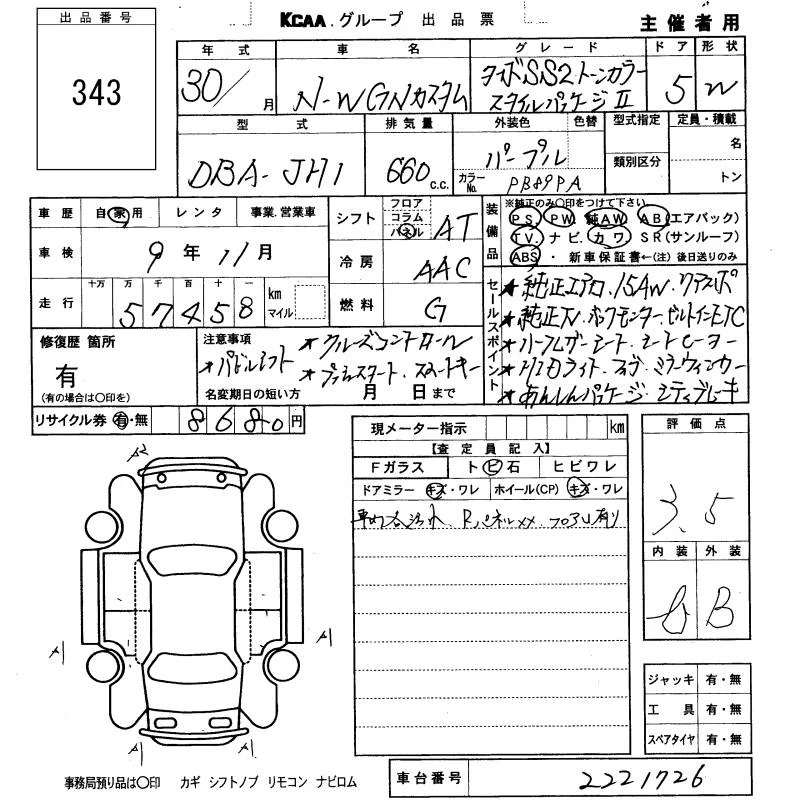 出品番号 KCAA.グループ 出品票 主催者用
343
年式 車名 グレード ドア 形状
30/月 N-WGNカスタム ターボSS2トーンカラー スタイルパッケージII 5 W
型式 排気量 外装色 色替 型式指定 定員・積載
DBA-JH1 660c.c. パープル 類別区分 名
カラーNo. PB89PA トン
車歴 自家用 レンタ 事業.営業車 シフト フロア コラム パネル AT
装備品 ※純正のみ○印をつけて下さい。
PS PW 純AW AB(エアバック)
TV. ナビ. カワ. SR(サンルーフ)
ABS・新車保証書←(注)後日送りのみ
車検 9年11月 冷房 AAC
走行 十万 万 千 百 十 一 km マイル
57458
燃料 G
セールスポイント
★純正エアロ.15AW.リアスポ
★純正TV.バックモニター.ビルトインETC
★ハーフレザーシート.シートヒーター
★HIDライト.フォグ.ミラーウィンカー
★あんしんパッケージ.シティブレーキ
修復歴 箇所 注意事項
有
(有の場合は○印を)
★クルーズコントロール
★パドルシフト ★プッシュスタート.スマートキー
名変期日の短い方 月 日まで
リサイクル券 有・無 8680円
現メーター指示 km
評価点
【査定員記入】
Fガラス トビ石 ヒビワレ
ドアミラー キズ・ワレ ホイール(CP) キズ・ワレ
Rパネルxx.
3.5
内装 外装
B
A2
A1
A1
A1
A1
ジャッキ 有・無
工具 有・無
スペアタイヤ 有・無
事務局預り品は○印 カギ シフトノブ リモコン ナビロム
車台番号 2221726